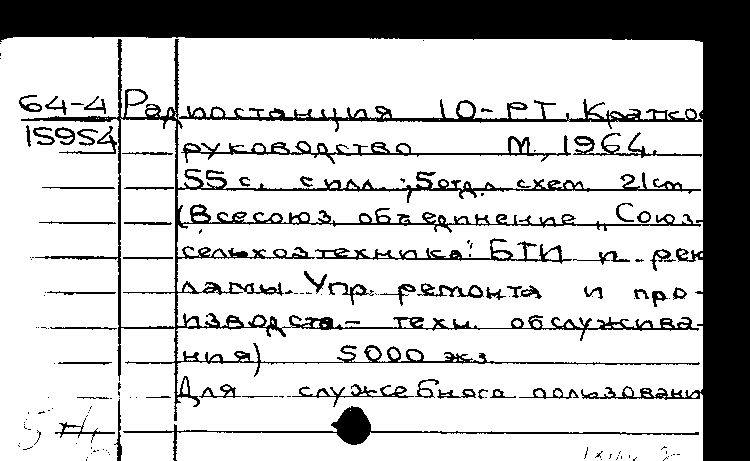 64-4 Радиостанция 10-РТ. Кратко
15954 руководство М., 1964.
55 с. с илл.; 5 отд.л. схем. 21 см.
(Всесоюз. объединение „Союз-
сельхозтехника". БТИ и рек
ламы. Упр. ремонта и про-
изводств.- техн. обслужива-
ния) 5000 экз.
Для служебного пользовани